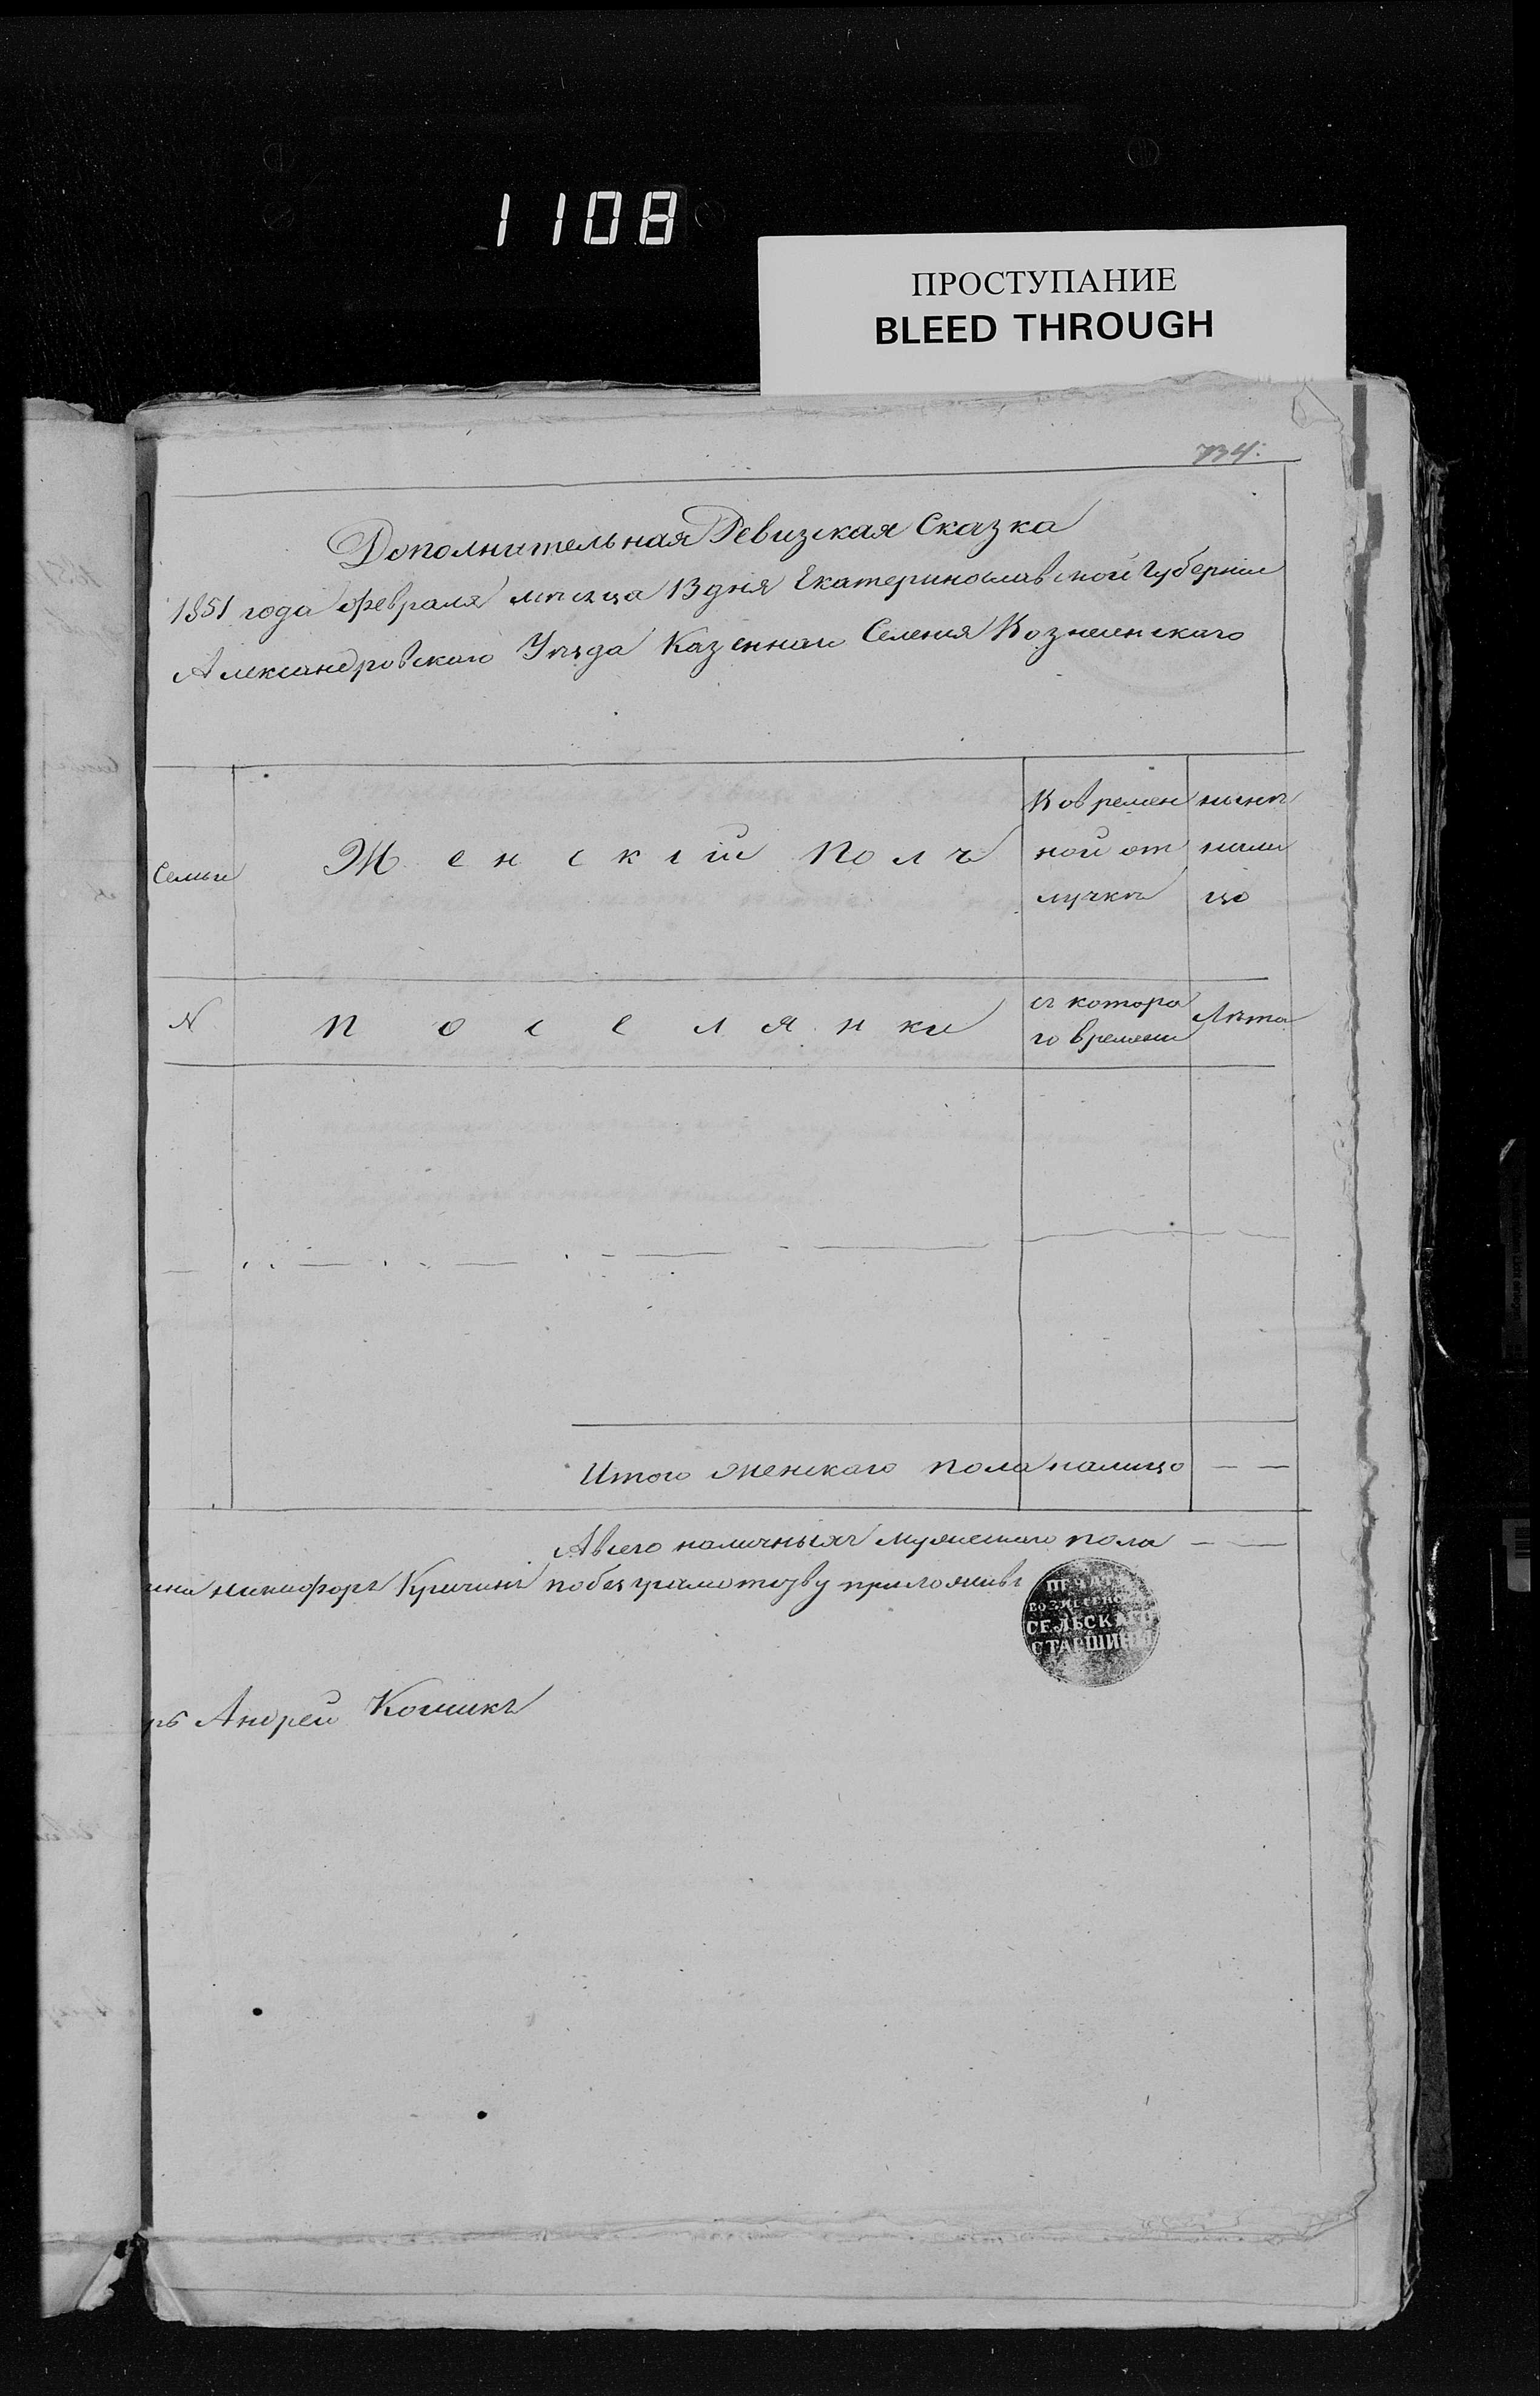 1108
ПРОСТУПАНИЕ
BLEED THROUGH
734.
Дополнительная Ревизская Сказка
1851 года февраля мѣсяца 13 дня Екатеринославской Губерніи
Александровскаго Уѣзда Казеннаго Селенія Вознесенскаго
Семьи
Женскій Полъ
Во времен
ной от
лучкѣ
нынѣ
нали
цо
N
поселянки
съ которо
го времени
Лѣта
Итого женскаго пола налицо — —
А всего наличныхъ мужескаго пола — —
Никифоръ по безграмотству приложивъ
ПЕЧАТЬ
ВОЗНЕСЕНС
СЕЛЬСКАГО
СТАРШИНЫ
ръ Андрей Кошикъ